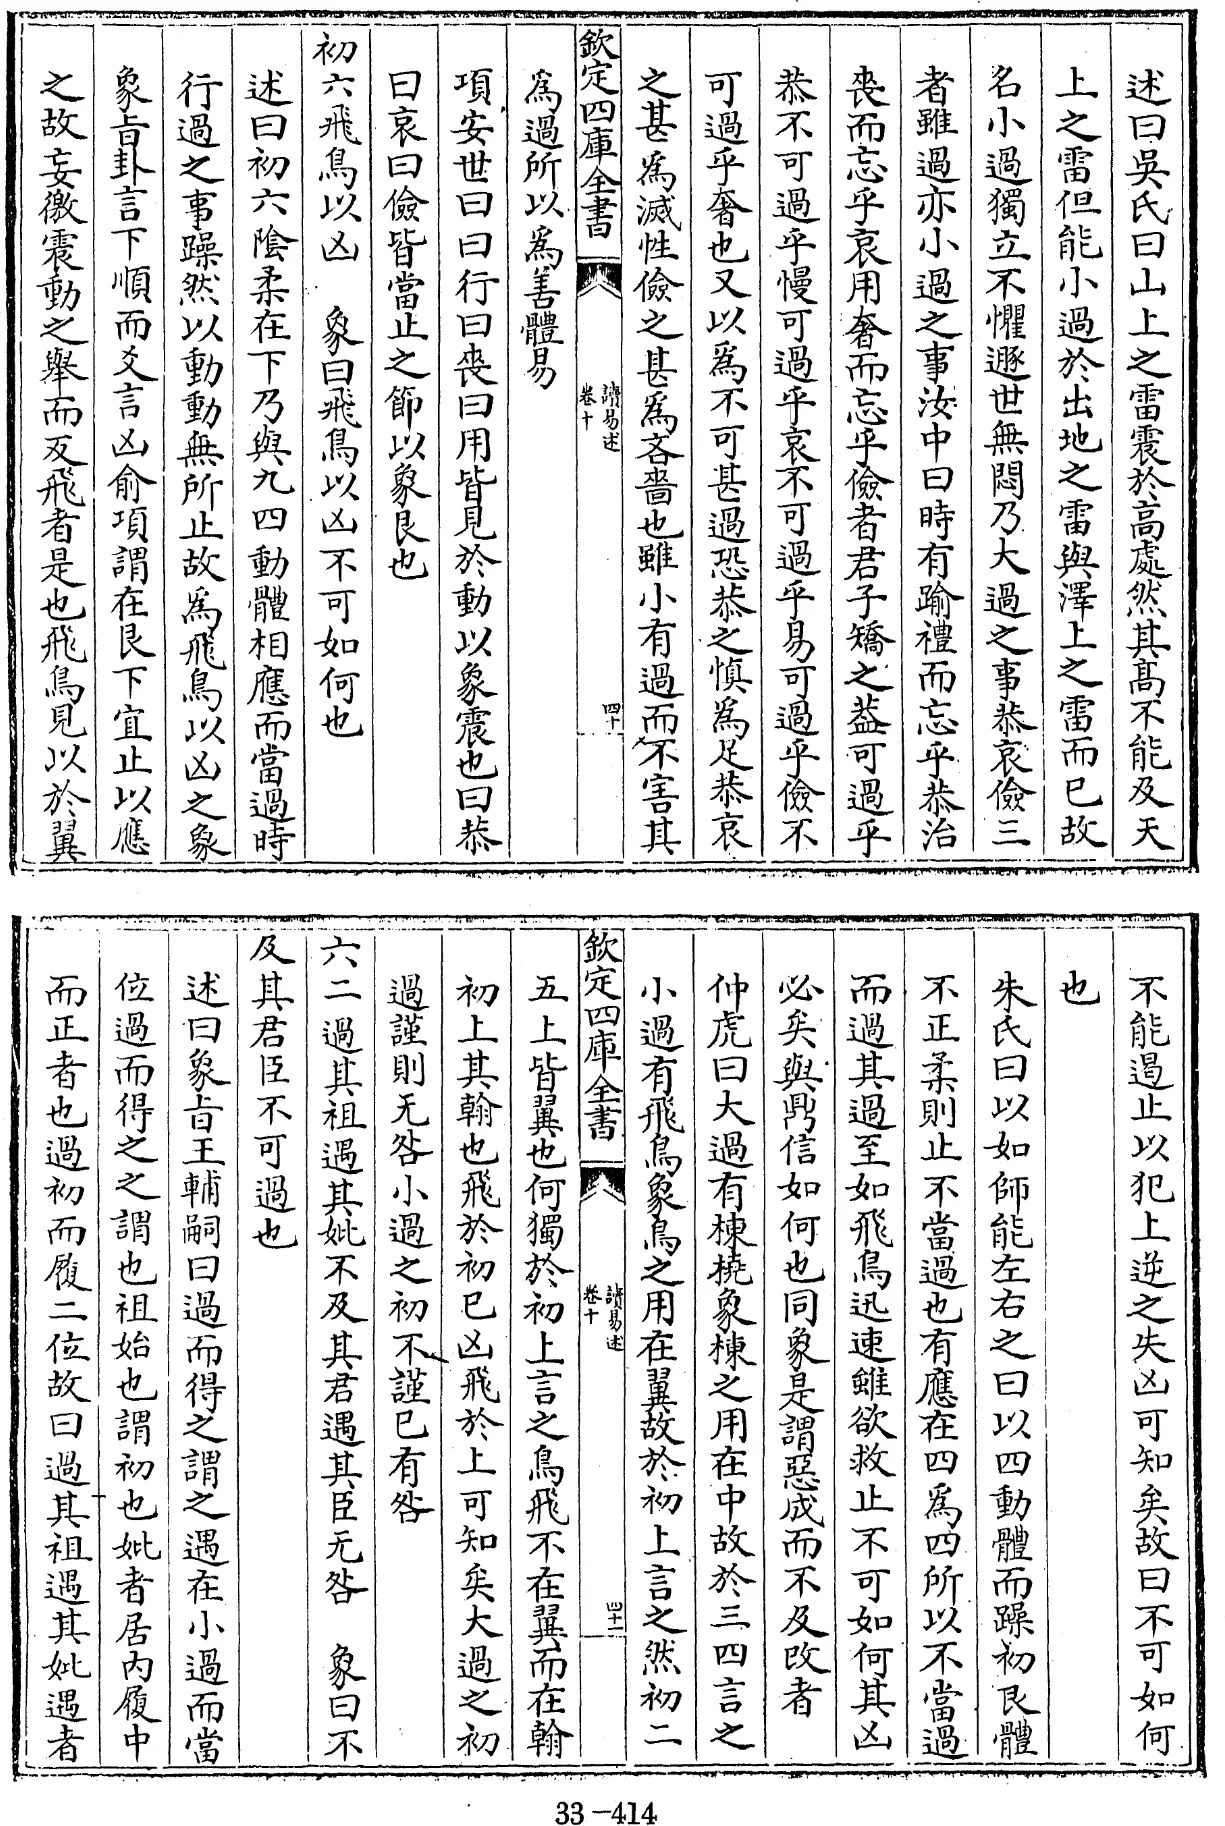 述曰吳氏曰山上之雷震於高處然其髙不能及天
上之雷但能小過於出地之雷與澤上之雷而已故
名小過獨立不懼遯世無悶乃大過之事恭哀儉三
者雖過亦小過之事汝中曰時有踰禮而忘乎恭治
喪而忘乎哀用奢而忘乎儉者君子矯之葢可過乎
恭不可過乎慢可過乎哀不可過乎易可過乎儉不
可過乎奢也又以為不可甚過恐恭之慎為足恭哀
之甚為滅性儉之甚為吝嗇也雖小有過而不害其
欽定四庫全書
讀易述
卷十
四十
為過所以為善體易
項安世曰曰行曰喪曰用皆見於動以象震也曰恭
曰哀曰儉皆當止之節以象艮也
初六飛鳥以凶　象曰飛鳥以凶不可如何也
述曰初六隂柔在下乃與九四動體相應而當過時
行過之事躁然以動動無所止故為飛鳥以凶之象
象旨卦言下順而爻言凶俞項謂在艮下宜止以應
之故妄徼震動之舉而反飛者是也飛鳥見以於翼
不能遏止以犯上逆之失凶可知矣故曰不可如何
也
朱氏曰以如師能左右之曰以四動體而躁初艮體
不正柔則止不當過也有應在四為四所以不當過
而過其過至如飛鳥迅速雖欲救止不可如何其凶
必矣與鼎信如何也同象是謂惡成而不及改者
仲虎曰大過有棟橈象棟之用在中故於三四言之
小過有飛鳥象鳥之用在翼故於初上言之然初二
欽定四庫全書
讀易述
卷十
四十一
五上皆翼也何獨於初上言之鳥飛不在翼而在翰
初上其翰也飛於初已凶飛於上可知矣大過之初
過謹則无咎小過之初不謹已有咎
六二過其祖遇其妣不及其君遇其臣无咎　象曰不
及其君臣不可過也
述曰象旨王輔嗣曰過而得之謂之遇在小過而當
位過而得之之謂也祖始也謂初也妣者居内履中
而正者也過初而履二位故曰過其祖遇其妣遇者
33-414